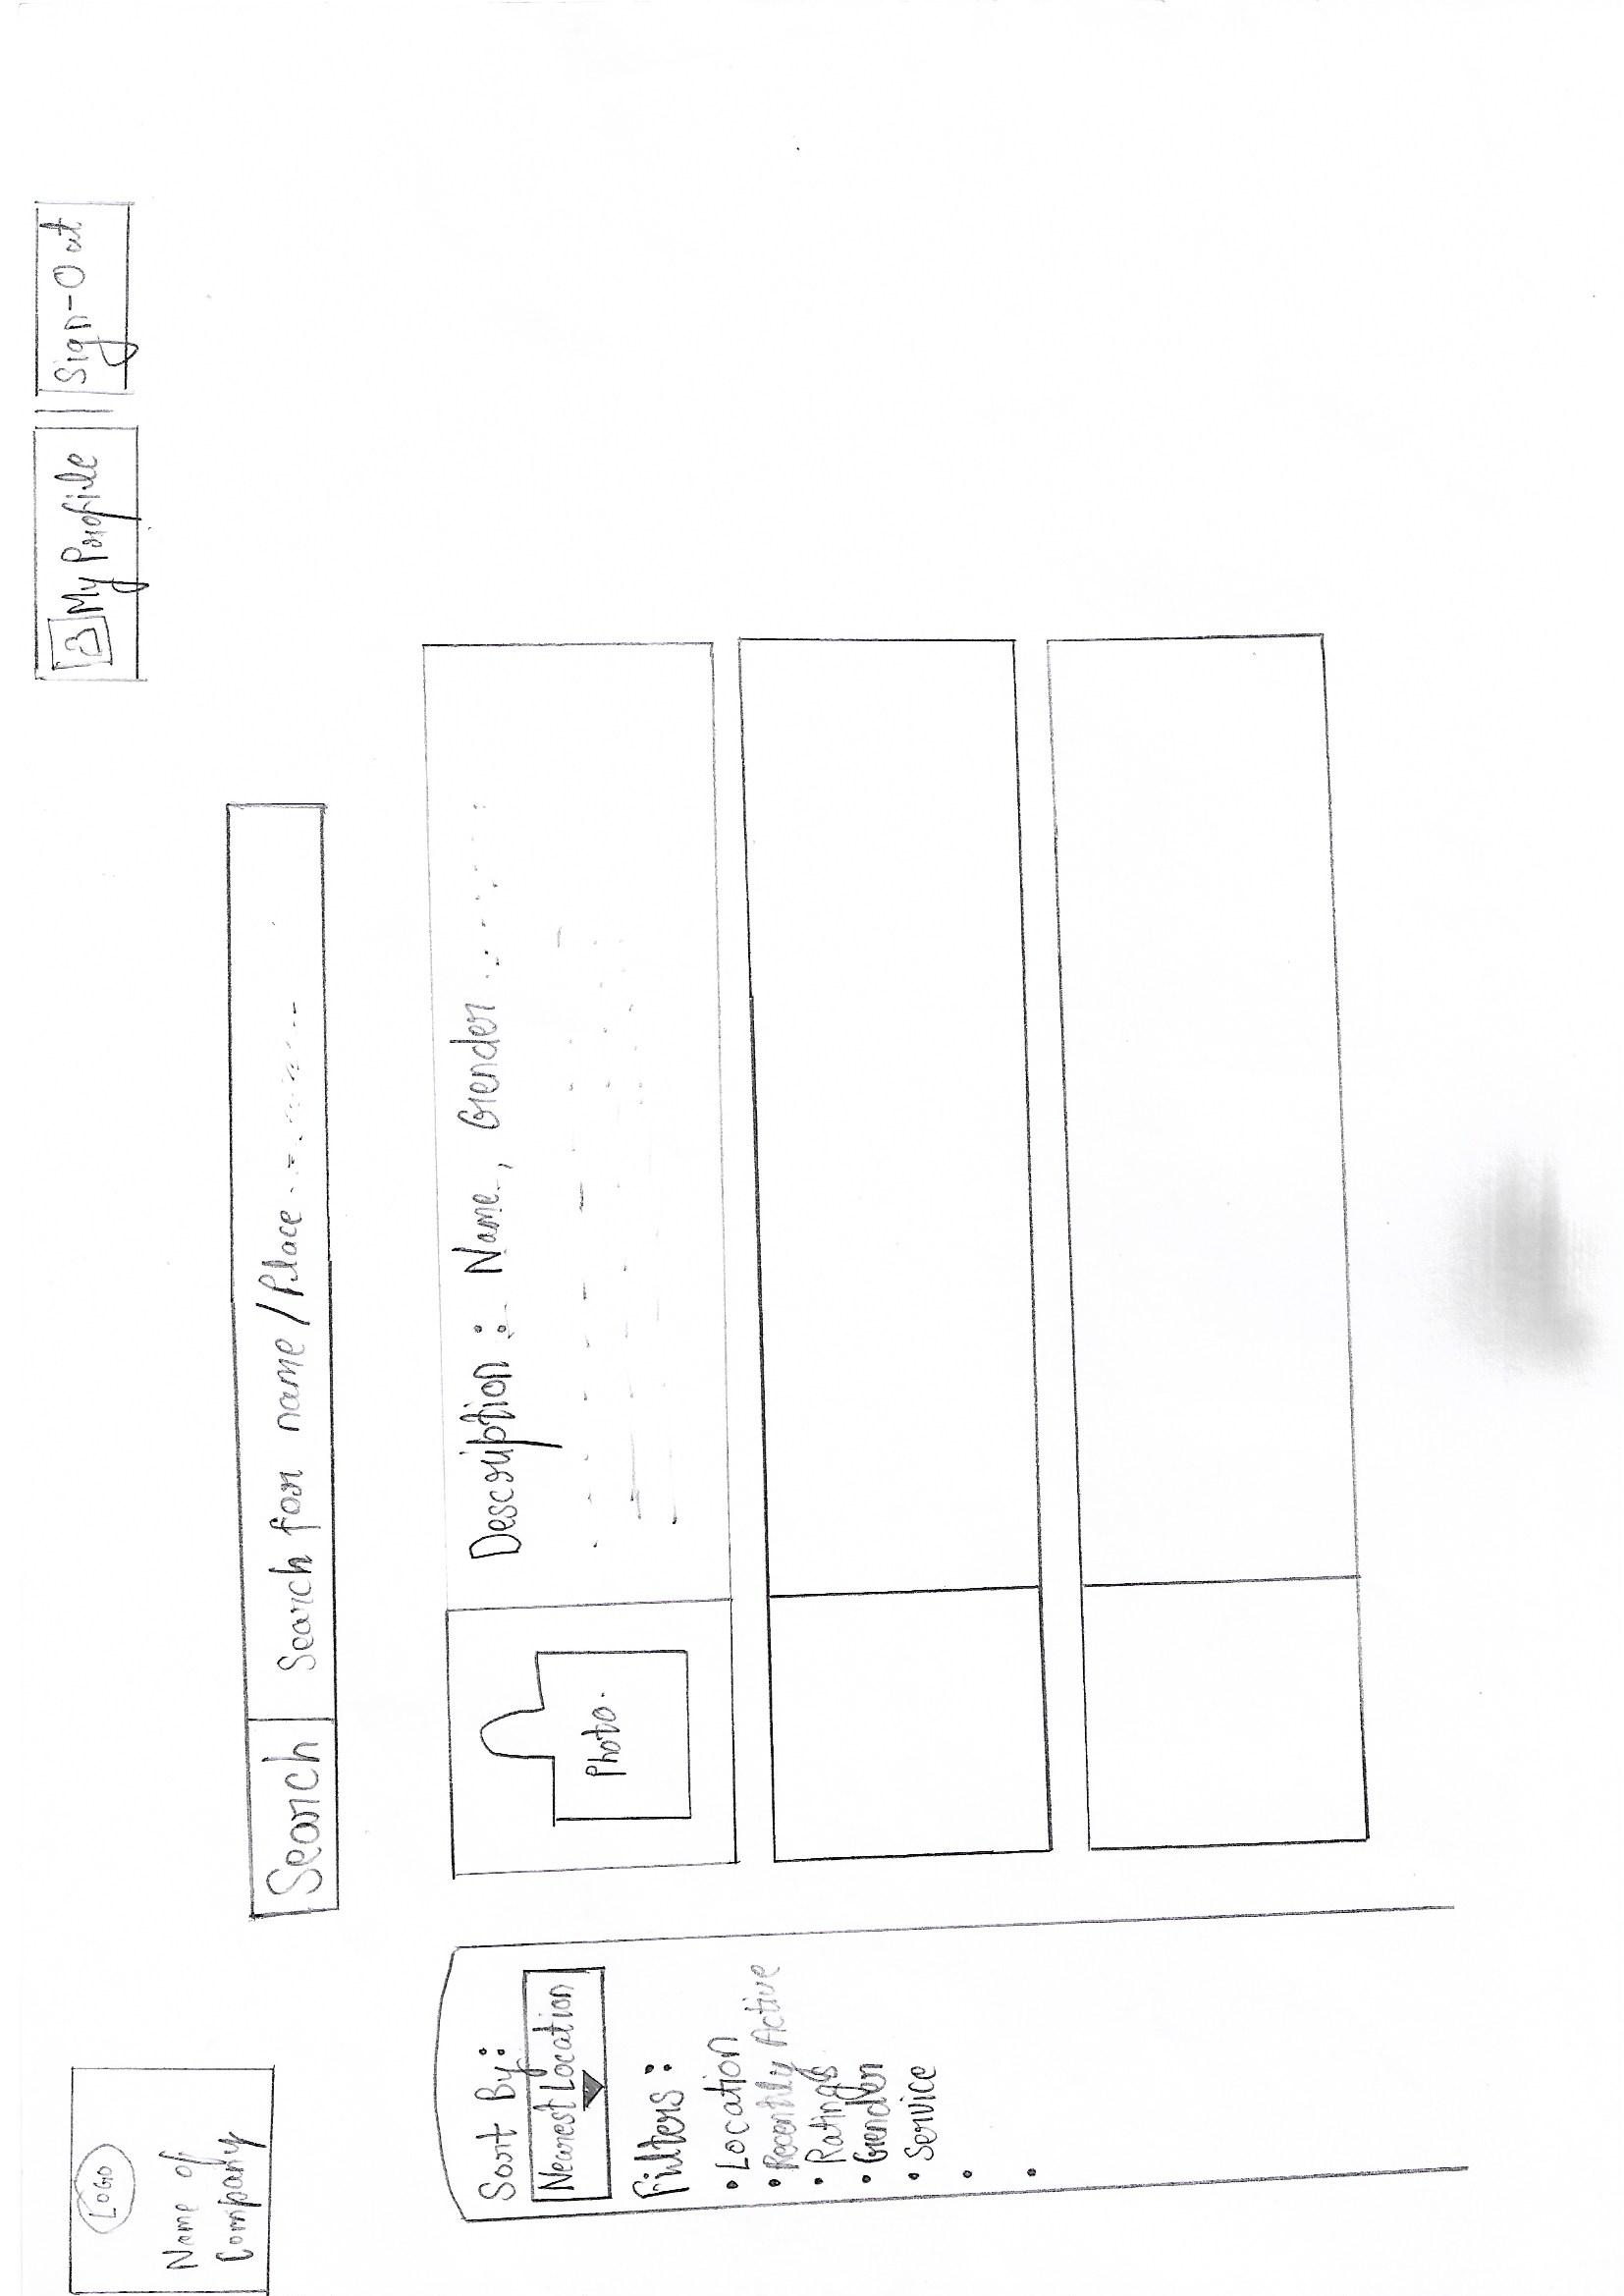 LOGO
Name of
Company
My Profile
Sign-Out
Search
Search for name/Place
Sort By:
Nearest Location
Filters:
• Location
• Recently Active
• Ratings
• Gender
• Service
Photo.
Description : Name, Gender